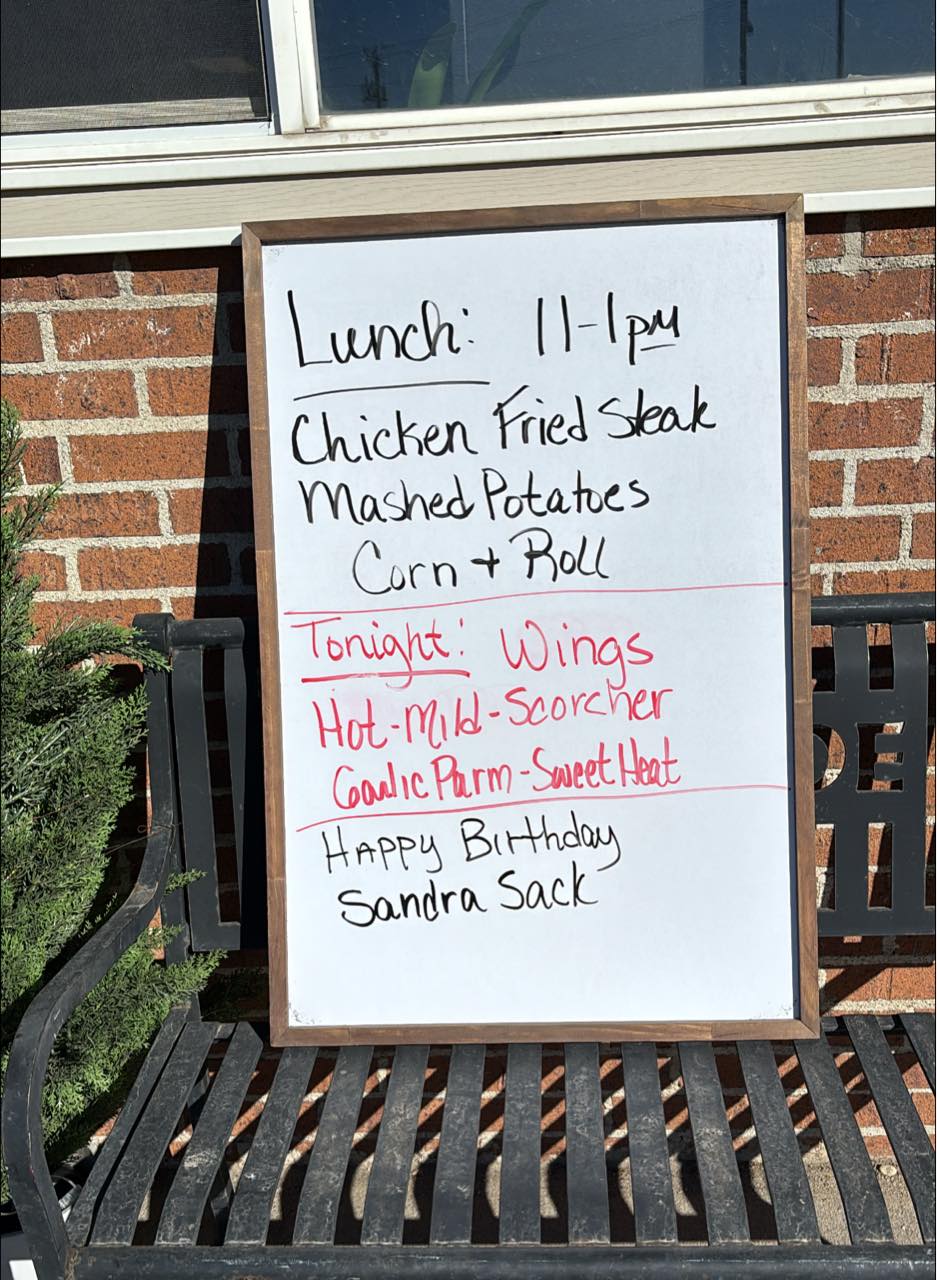 Lunch: 11-1pm
Chicken Fried Steak
Mashed Potatoes
Corn + Roll
Tonight: Wings
Hot-Mild-Scorcher
Garlic Parm-Sweet Heat
Happy Birthday
Sandra Sack
DE